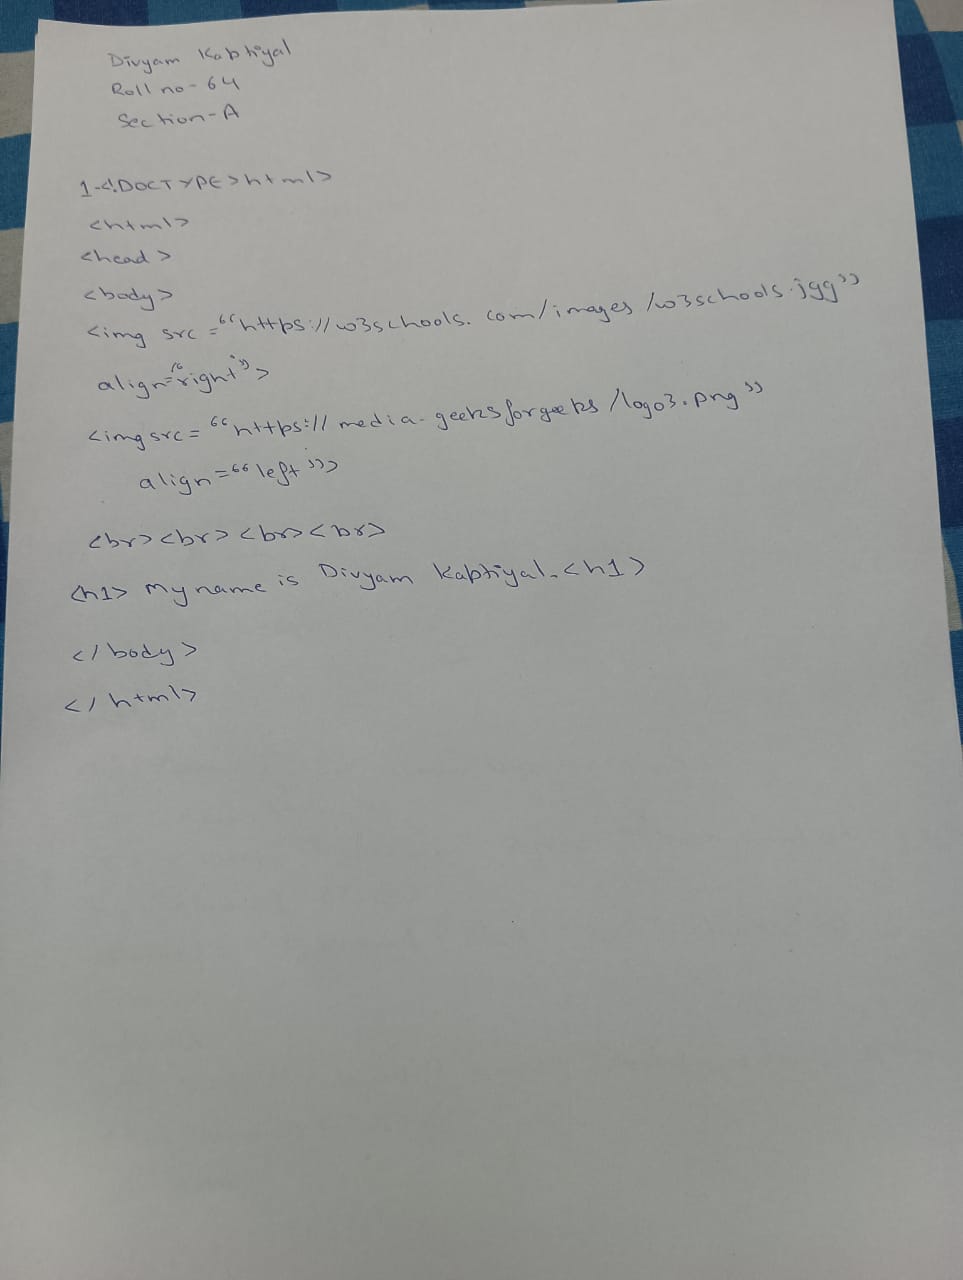 Divyam Kaptiyal
Roll no - 64
Section - A
1-<!DOCTYPE>html>
<html>
<head>
<body>
<img src = “https://w3schools.com/images/w3schools.jgg”
align=“right”>
<img src = “https://media.geeksforgeeks/logo3.png”
align=“left”>
<br><br><br><br>
<h1> My name is Divyam Kaptiyal.<h1>
</body>
</html>